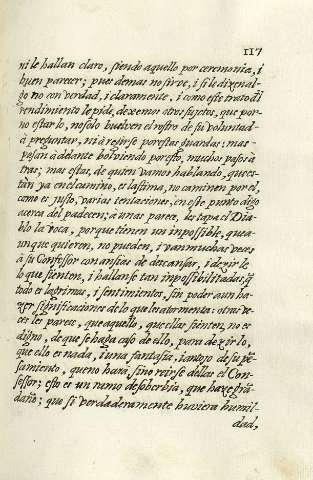 117
ni le hallan claro, siendo aquello por ceremonia, i
buen parecer; pues demas no sirve, i si lo dixen al-
go no con verdad, i claramente, i como este trato de
rendimiento le pide, dexemos otros sujetos, que por
no estarlo, no solo buelven el rostro de su voluntad
à preguntar, ni à regirse por estas guardas; mas
pasan à delante bolviendo por esto, muchos pasos à
tras; mas estas, de quien vamos hablando, que es-
tan ya en el cumino, es lastima, no caminen por el,
como es justo, varias tentaciones, en este punto digo
acerca del padecen; a unas parece, les tapa el Dia-
blo la voca, porque tienen un inpossible, que a-
unque quieren, no pueden, i van muchas veces
à su Confessor con ansias de descansar, i dezirle
lo que sienten, i hallanse tan inpossibilitadas, q
todo es lagrimas, i sentimientos, sin poder aun ha-
zer significaciones de lo que les atormenta: otras ve-
ces les parece, que aquello, que ellas sienten, no es
digno, de que se haga caso de ello, para dezirlo,
que ello es nada, i una fantasia, i antojo de su pe-
samiento, que no harà, sino reirse dellas el Con-
fessor; esto es un ramo de soberbia, que haze gra
daño; que si verdaderamente huviera humil-
dad,